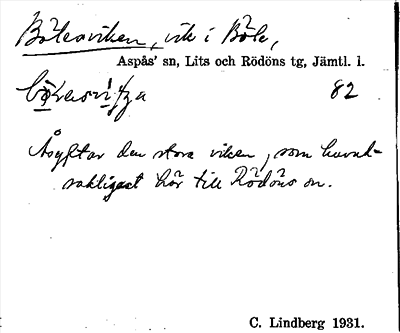 Böleaviken, vik i Böle,
Aspås' sn, Lits och Rödöns tg, Jämtl. l.
82
Åsyftar den stora viken, som huvud-
sakligast hör till Rödöns sn.
C. Lindberg 1931.